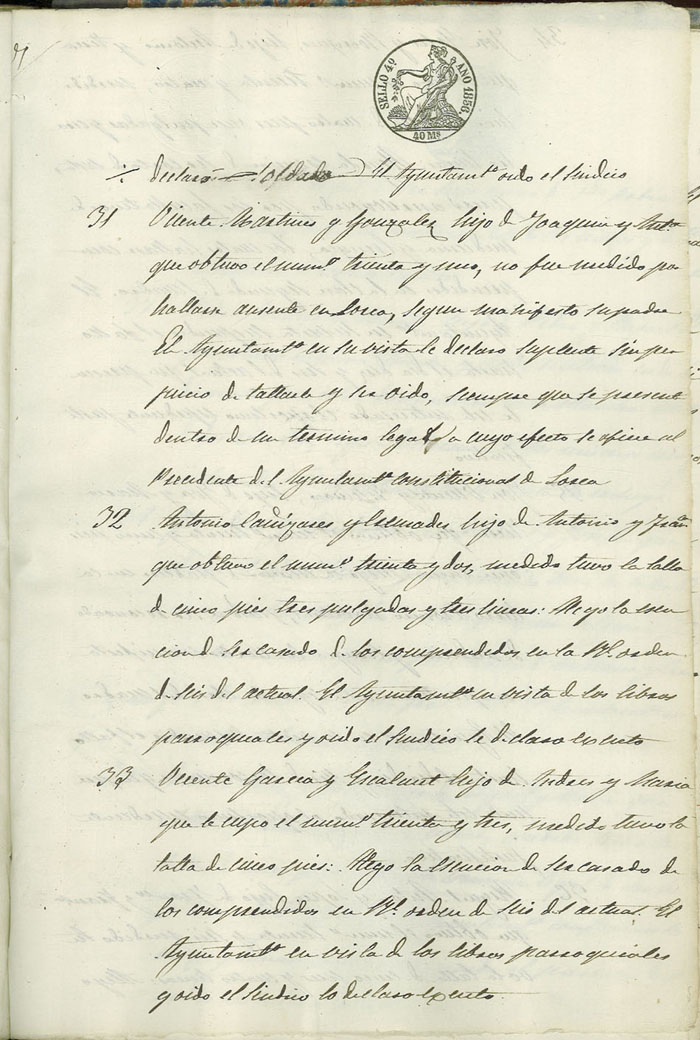 SELLO 4º AÑO 1856.
40 Ms
declaró soldado El Ayuntamto oido el Sindico
31 Vicente Martinez y Gonzalez hijo de Joaquin y Anta
que obtuvo el numo treinta y uno, no fue medido por
hallarse ausente en Lorca, segun manifesto su padre
El Ayuntamto en su vista le declaro suplente sin per
juicio de tallarle y ser oido, siempre que se presente
dentro de un termino legal a cuyo efecto se oficie al
Presidente del Ayuntamto constitucional de Lorca
32 Antonio Cañizares y hijo de Antonio y Franca
que obtuvo el numo treinta y dos, medido tuvo la talla
de cinco pies tres pulgadas y tres lineas: Alego la esen
cion de ser casado de los comprendidos en la Rl. orden
de seis del actual. El Ayuntamto en vista de los libros
parroquiales y oido el Sindico le declaro exento
33 Vicente Garcia y Gualart hijo de Andres y Maria
que le cupo el numo treinta y tres, medido tuvo la
talla de cinco pies: Alego la esencion de ser casado de
los comprendidos en Rl. orden de seis del actual. El
Ayuntamto en vista de los libros parroquiales
y oido el Sindico lo declaro exento.